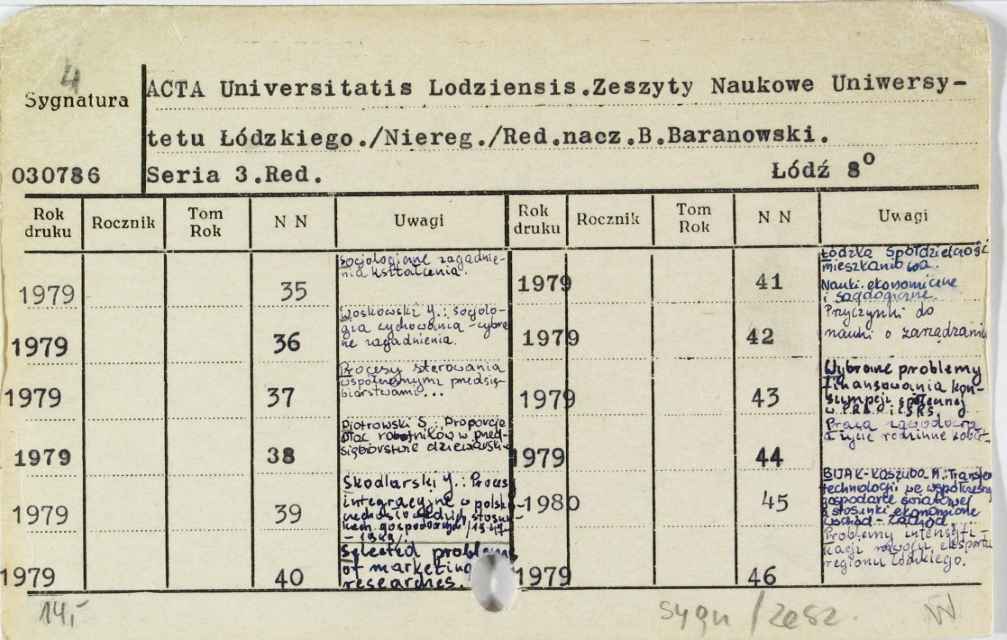 4
Sygnatura
ACTA Universitatis Lodziensis.Zeszyty Naukowe Uniwersy-
tetu Łódzkiego./Niereg./Red.nacz.B.Baranowski.
030786
Seria 3.Red. Łódź 8°
Rok druku Rocznik Tom Rok N N Uwagi Rok druku Rocznik Tom Rok N N Uwagi
1979 35 Socjologiczne zagadnie-
nia kształcenia.
1979 36 Woskowski J.: Socjolo-
gia wychowania - wybra-
ne zagadnienia.
1979 37 Procesy sterowania
współczesnymi przedsię-
biorstwami...
1979 38 Piotrowski S.: Proporcje
płac robotników w przed-
siębiorstwie dziewiarski
1979 39 Skodlarski J.: Proces
integracyjne w polsk
1979 40 Selected problem
of marketing
researches.
1979 41 Łódzka Spółdzielczość
mieszkaniowa.
Nauki ekonomiczne
i socjologiczne.
1979 42 Przyczynki do
nauki o zarządzaniu
1979 43 Wybrane problemy
finansowania kon-
sumpcji społecznej
w PRL i CSRS.
1979 44 Praca zawodowa
a życie rodzinne kobiet.
1980 45 BIJAK-KASZUBA M.: Transfer
technologii we współczesnej
gospodarce światowej
a stosunki ekonomiczne
Wschód - Zachód.
1979 46 Problemy intensyfi-
kacji rozwoju eksportu
regionu łódzkiego.
14,-
sygn/zesz.
W